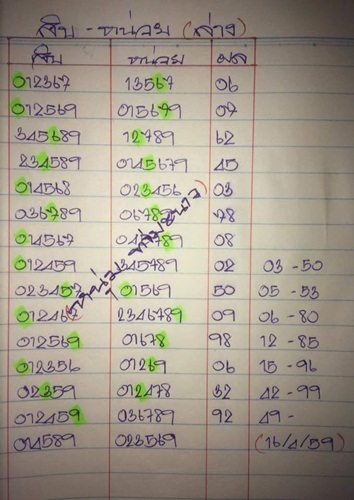 สิบ - หน่วย (ล่าง)
สิบ หน่วย ผล
012367 13567 06
012569 015679 07
345689 12789 62
234589 0145679 45
014568 023456 03
036789 06789 78
014567 08
012459 345789 02 03 - 50
023457 01569 50 05 - 53
01246 2346789 09 06 - 80
012569 01678 98 12 - 85
012356 01269 06 15 - 96
02359 012478 32 42 - 99
012459 036789 92 49 -
014589 023569 (16/4/59)